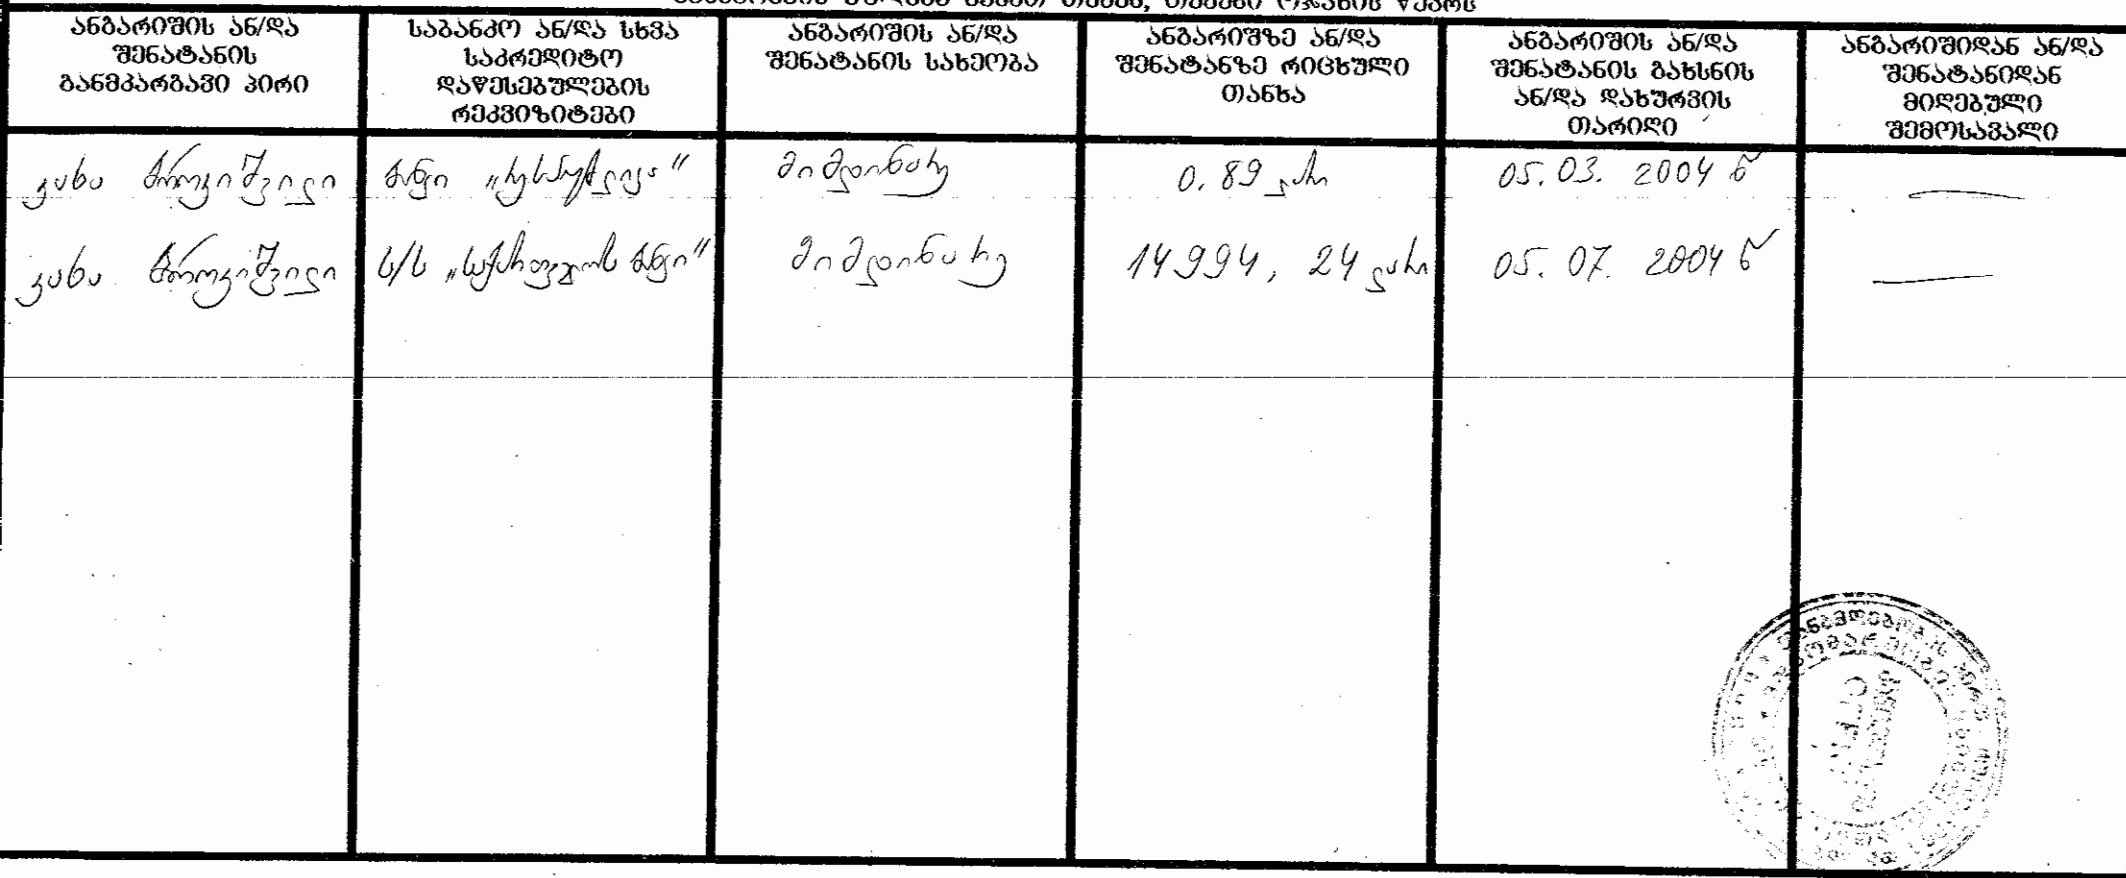 ანგარიშის ან/და შენატანის განმკარგავი პირი
საბანკო ან/და სხვა საკრედიტო დაწესებულების რეკვიზიტები
ანგარიშის ან/და შენატანის სახეობა
ანგარიშზე ან/და შენატანზე რიცხული თანხა
ანგარიშის ან/და შენატანის გახსნის ან/და დახურვის თარიღი
ანგარიშიდან ან/და შენატანიდან მიღებული შემოსავალი
კახა ბროკიშვილი ბანკი „რესპუბლიკა“ მიმდინარე 0.89 ლარი 05.03. 2004 წ —
კახა ბროკიშვილი ს/ს „საქართველოს ბანკი“ მიმდინარე 14994, 24 ლარი 05.07. 2004 წ —